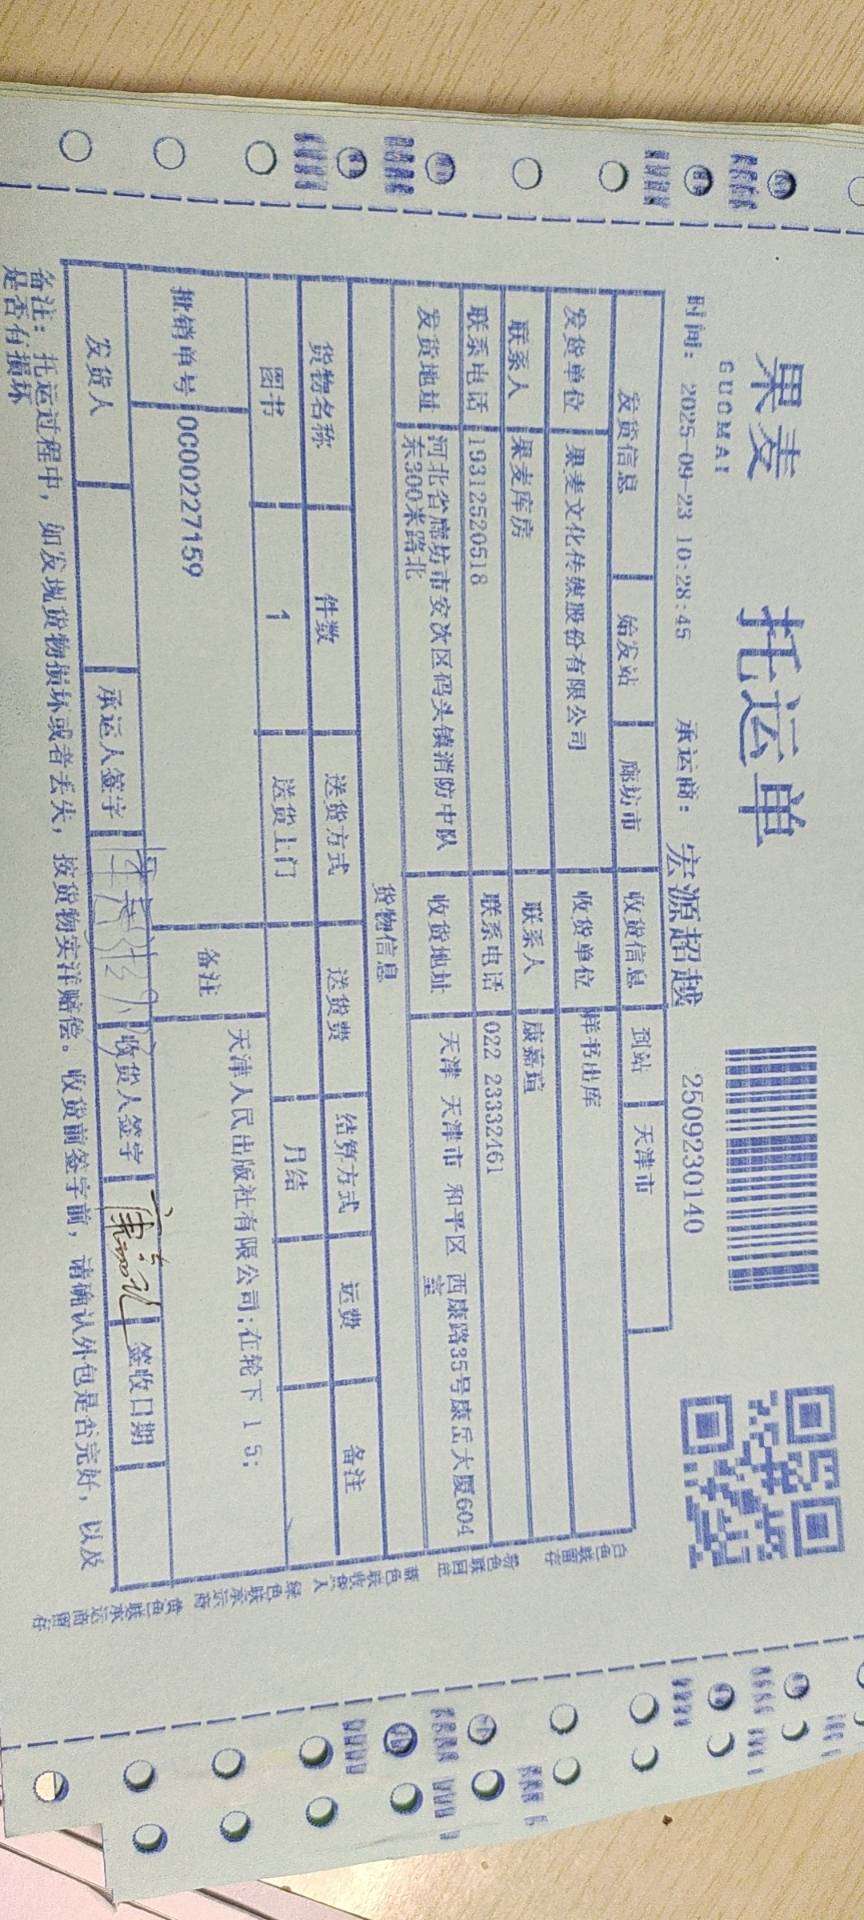 果麦
GUOMAI
托运单
时间: 2025-09-23 10:28:45 承运商: 宏源超越 2509230140
发货信息 始发站 廊坊市 收货信息 到站 天津市
发货单位 果麦文化传媒股份有限公司 收货单位 样书出库
联系人 果麦库房 联系人 康嘉瑄
联系电话 19312520518 联系电话 022 23332461
发货地址 河北省廊坊市安次区码头镇消防中队
东300米路北 收货地址 天津 天津市 和平区 西康路35号康岳大厦604
室
货物信息
货物名称 件数 送货方式 送货费 结算方式 运费 备注
图书 1 送货上门 月结
批销单号 0C00227159 备注 天津人民出版社有限公司;在轮下 15;
发货人 承运人签字 收货人签字 签收日期
备注: 托运过程中, 如发现货物损坏或者丢失, 按货物实洋赔偿。收货前签字前, 请确认外包是否完好, 以及
是否有损坏
白色联留存